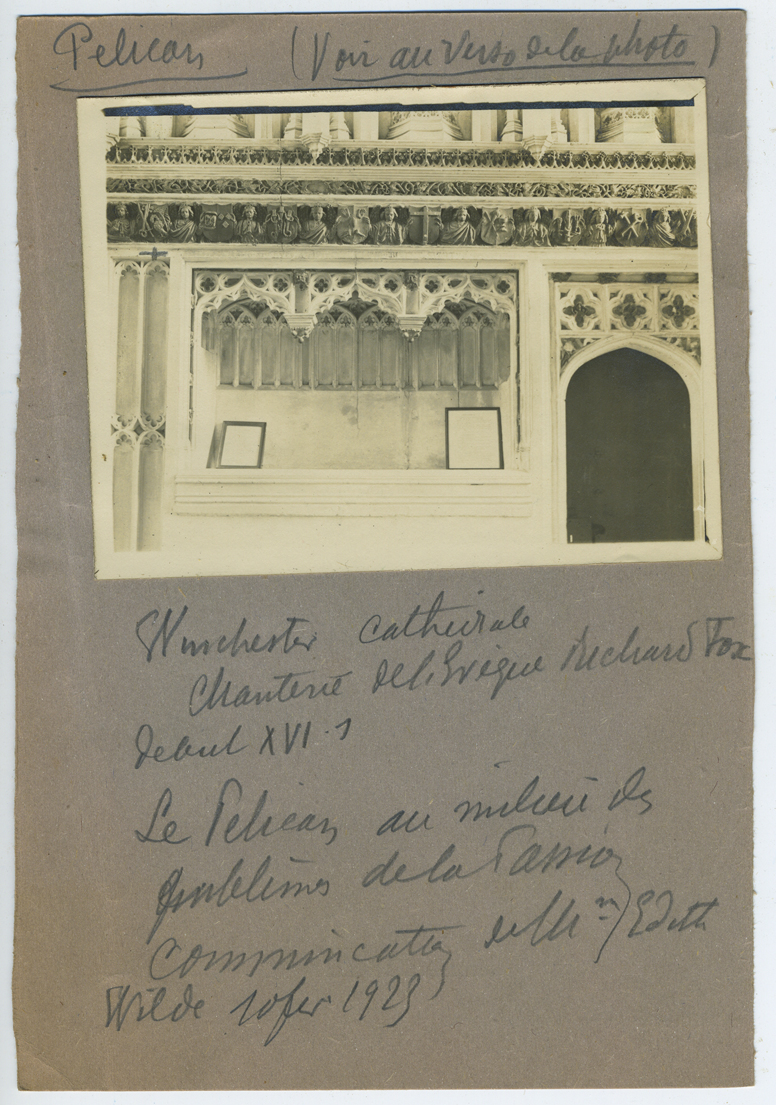 Pelican (Voir au verso de la photo)
Winchester cathédrale
Chanterie de l'Evêque Richard Fox
debut XVI s
Le Pelican au milieu des
emblèmes de la Passion
communication de Mrs Edith
Wilde 10 fev 1923